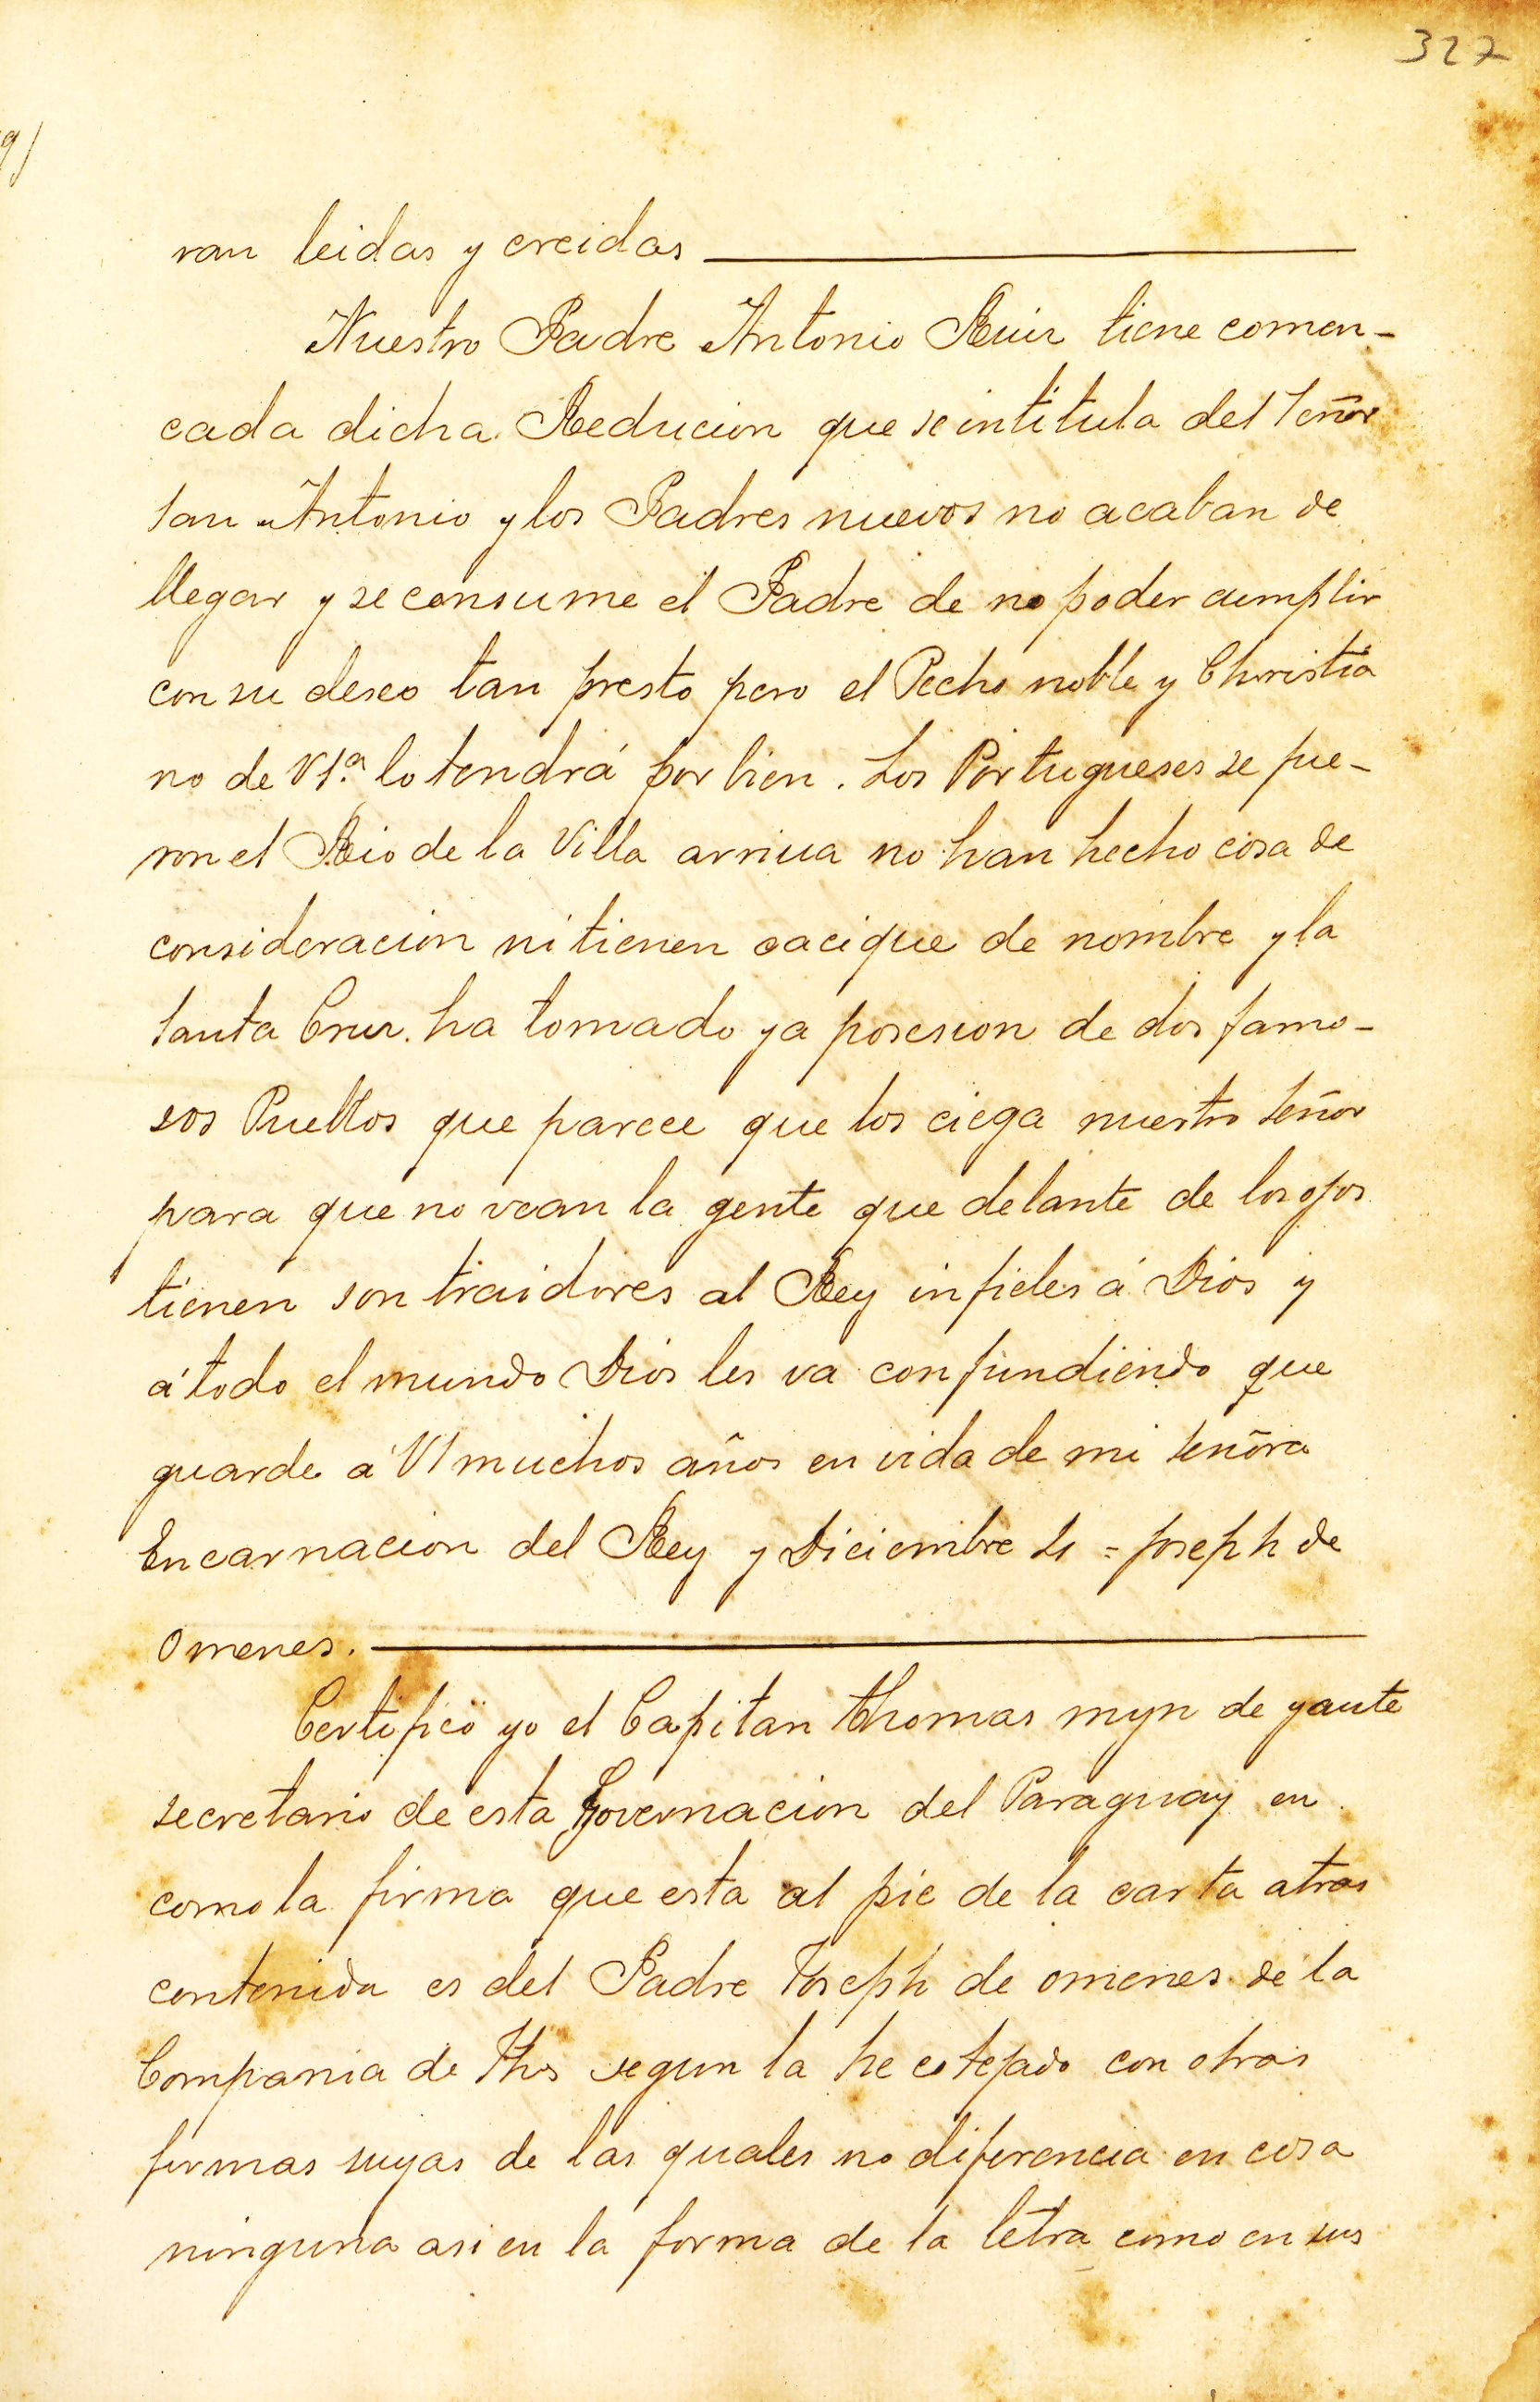 327
ran leidas y creidas
Nuestro Padre Antonio Ruiz tiene comen-
cada dicha Reducion que se intitula del Señor
San Antonio y los Padres nuevos no acaban de
llegar y se consume el Padre de no poder cumplir
con su deseo tan presto pero el Pecho noble y Christia
no de VSª. lo tendrá por bien. Los Portugueses se fue-
ron el Rio de la Villa arriua no han hecho cosa de
consideracion ni tienen cacique de nombre y la
Santa Cruz. ha tomado ya posesion de dos famo-
sos Pueblos que parece que los ciega nuestro Señor
para que no vean la gente que delante de los ojos
tienen son traidores al Rey infieles á Dios y
á todo el mundo Dios les va confundiendo que
guarde á VS muchos años en vida de mi Señora
Encarnacion del Rey y Diciembre = Joseph de
Omenes.
Certifico yo el Capitan Thomas myn de yante
secretario de esta Governacion del Paraguay en
como la firma que esta al pie de la carta atras
contenida es del Padre Joseph de omenes de la
Compania de Jhs segun la he cotejado con otras
firmas suyas de las quales no diferencia en cosa
ninguna asi en la forma de la letra como en sus